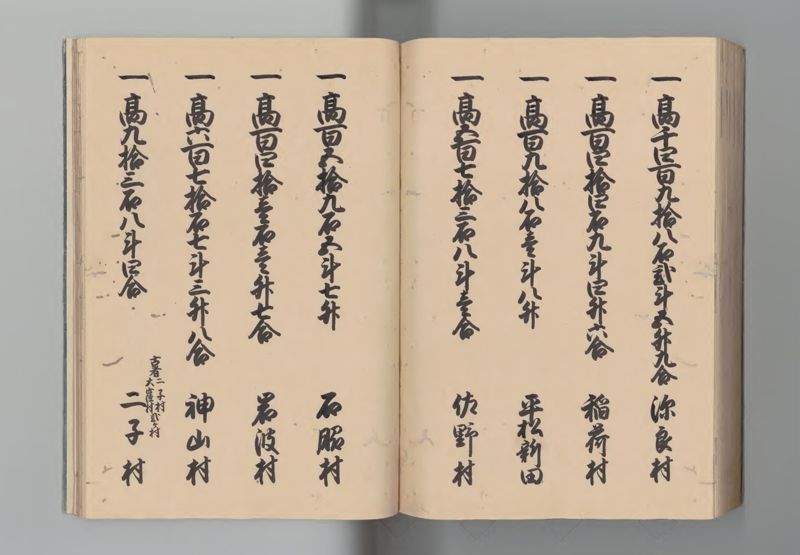 一 高千四百九拾八石弐斗五升九合 深良村
一 高百四拾四石九斗四升六合 稲荷村
一 高百九拾八石壱斗八升 平松新田
一 高五百七拾三石八斗壱合 佐野村
一 高百五拾九石五斗七升 石脇村
一 高百四拾壱石壱升七合 岩波村
一 高六百七拾石七斗三升八合 神山村
一 高九拾三石八斗四合 二子村
古者二子村
大窪村弐ヶ村